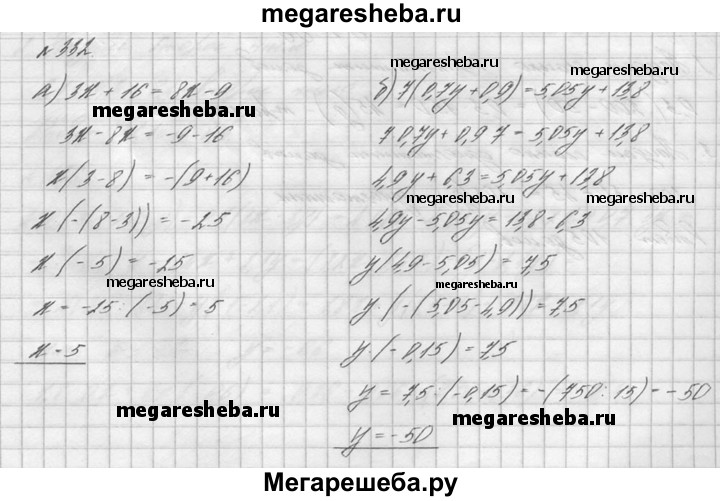 megaresheba.ru
№ 332
а) 3x + 16 = 8x - 9
megaresheba.ru
3x - 8x = -9 - 16
x(3-8) = -(9+16)
x(-(8-3)) = -25
x(-5) = -25
megaresheba.ru
x = -25 : (-5) = 5
x = 5
megaresheba.ru
б) 7(0,7y + 0,9) = 5,05y + 13,8
megaresheba.ru
7·0,7y + 0,9·7 = 5,05y + 13,8
4,9y + 6,3 = 5,05y + 13,8
megaresheba.ru
megaresheba.ru
4,9y - 5,05y = 13,8 - 6,3
y(4,9 - 5,05) = 7,5
megaresheba.ru
y·(-(5,05 - 4,9)) = 7,5
y(-0,15) = 7,5
y = 7,5 : (-0,15) = -(750 : 15) = -50
megaresheba.ru
y = -50
Мегарешеба.ру